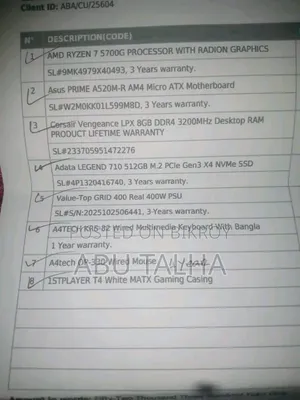 Client ID: ABA/CU/25604
N° DESCRIPTION(CODE)
1 AMD RYZEN 7 5700G PROCESSOR WITH RADION GRAPHICS
SL#9MK4979X40493, 3 Years warranty.
2 Asus PRIME A520M-R AM4 Micro ATX Motherboard
SL#W2M0KK01L599M8D, 3 Years warranty.
3 Corsair Vengeance LPX 8GB DDR4 3200MHz Desktop RAM
PRODUCT LIFETIME WARRANTY
SL#233705951472276
4 Adata LEGEND 710 512GB M.2 PCIe Gen3 X4 NVMe SSD
SL#4P1320416740, 3 Years warranty.
5 Value-Top GRID 400 Real 400W PSU
SL#S/N:2025102506441, 3-Years warranty.
6 A4TECH KRS-82 Wired Multimedia Keyboard With Bangla
POSTED ON BIKROY
1 Year warranty.
ABU TALHA
7 A4tech OP-330 Wired Mouse 1 Year
8 1STPLAYER T4 White MATX Gaming Casing